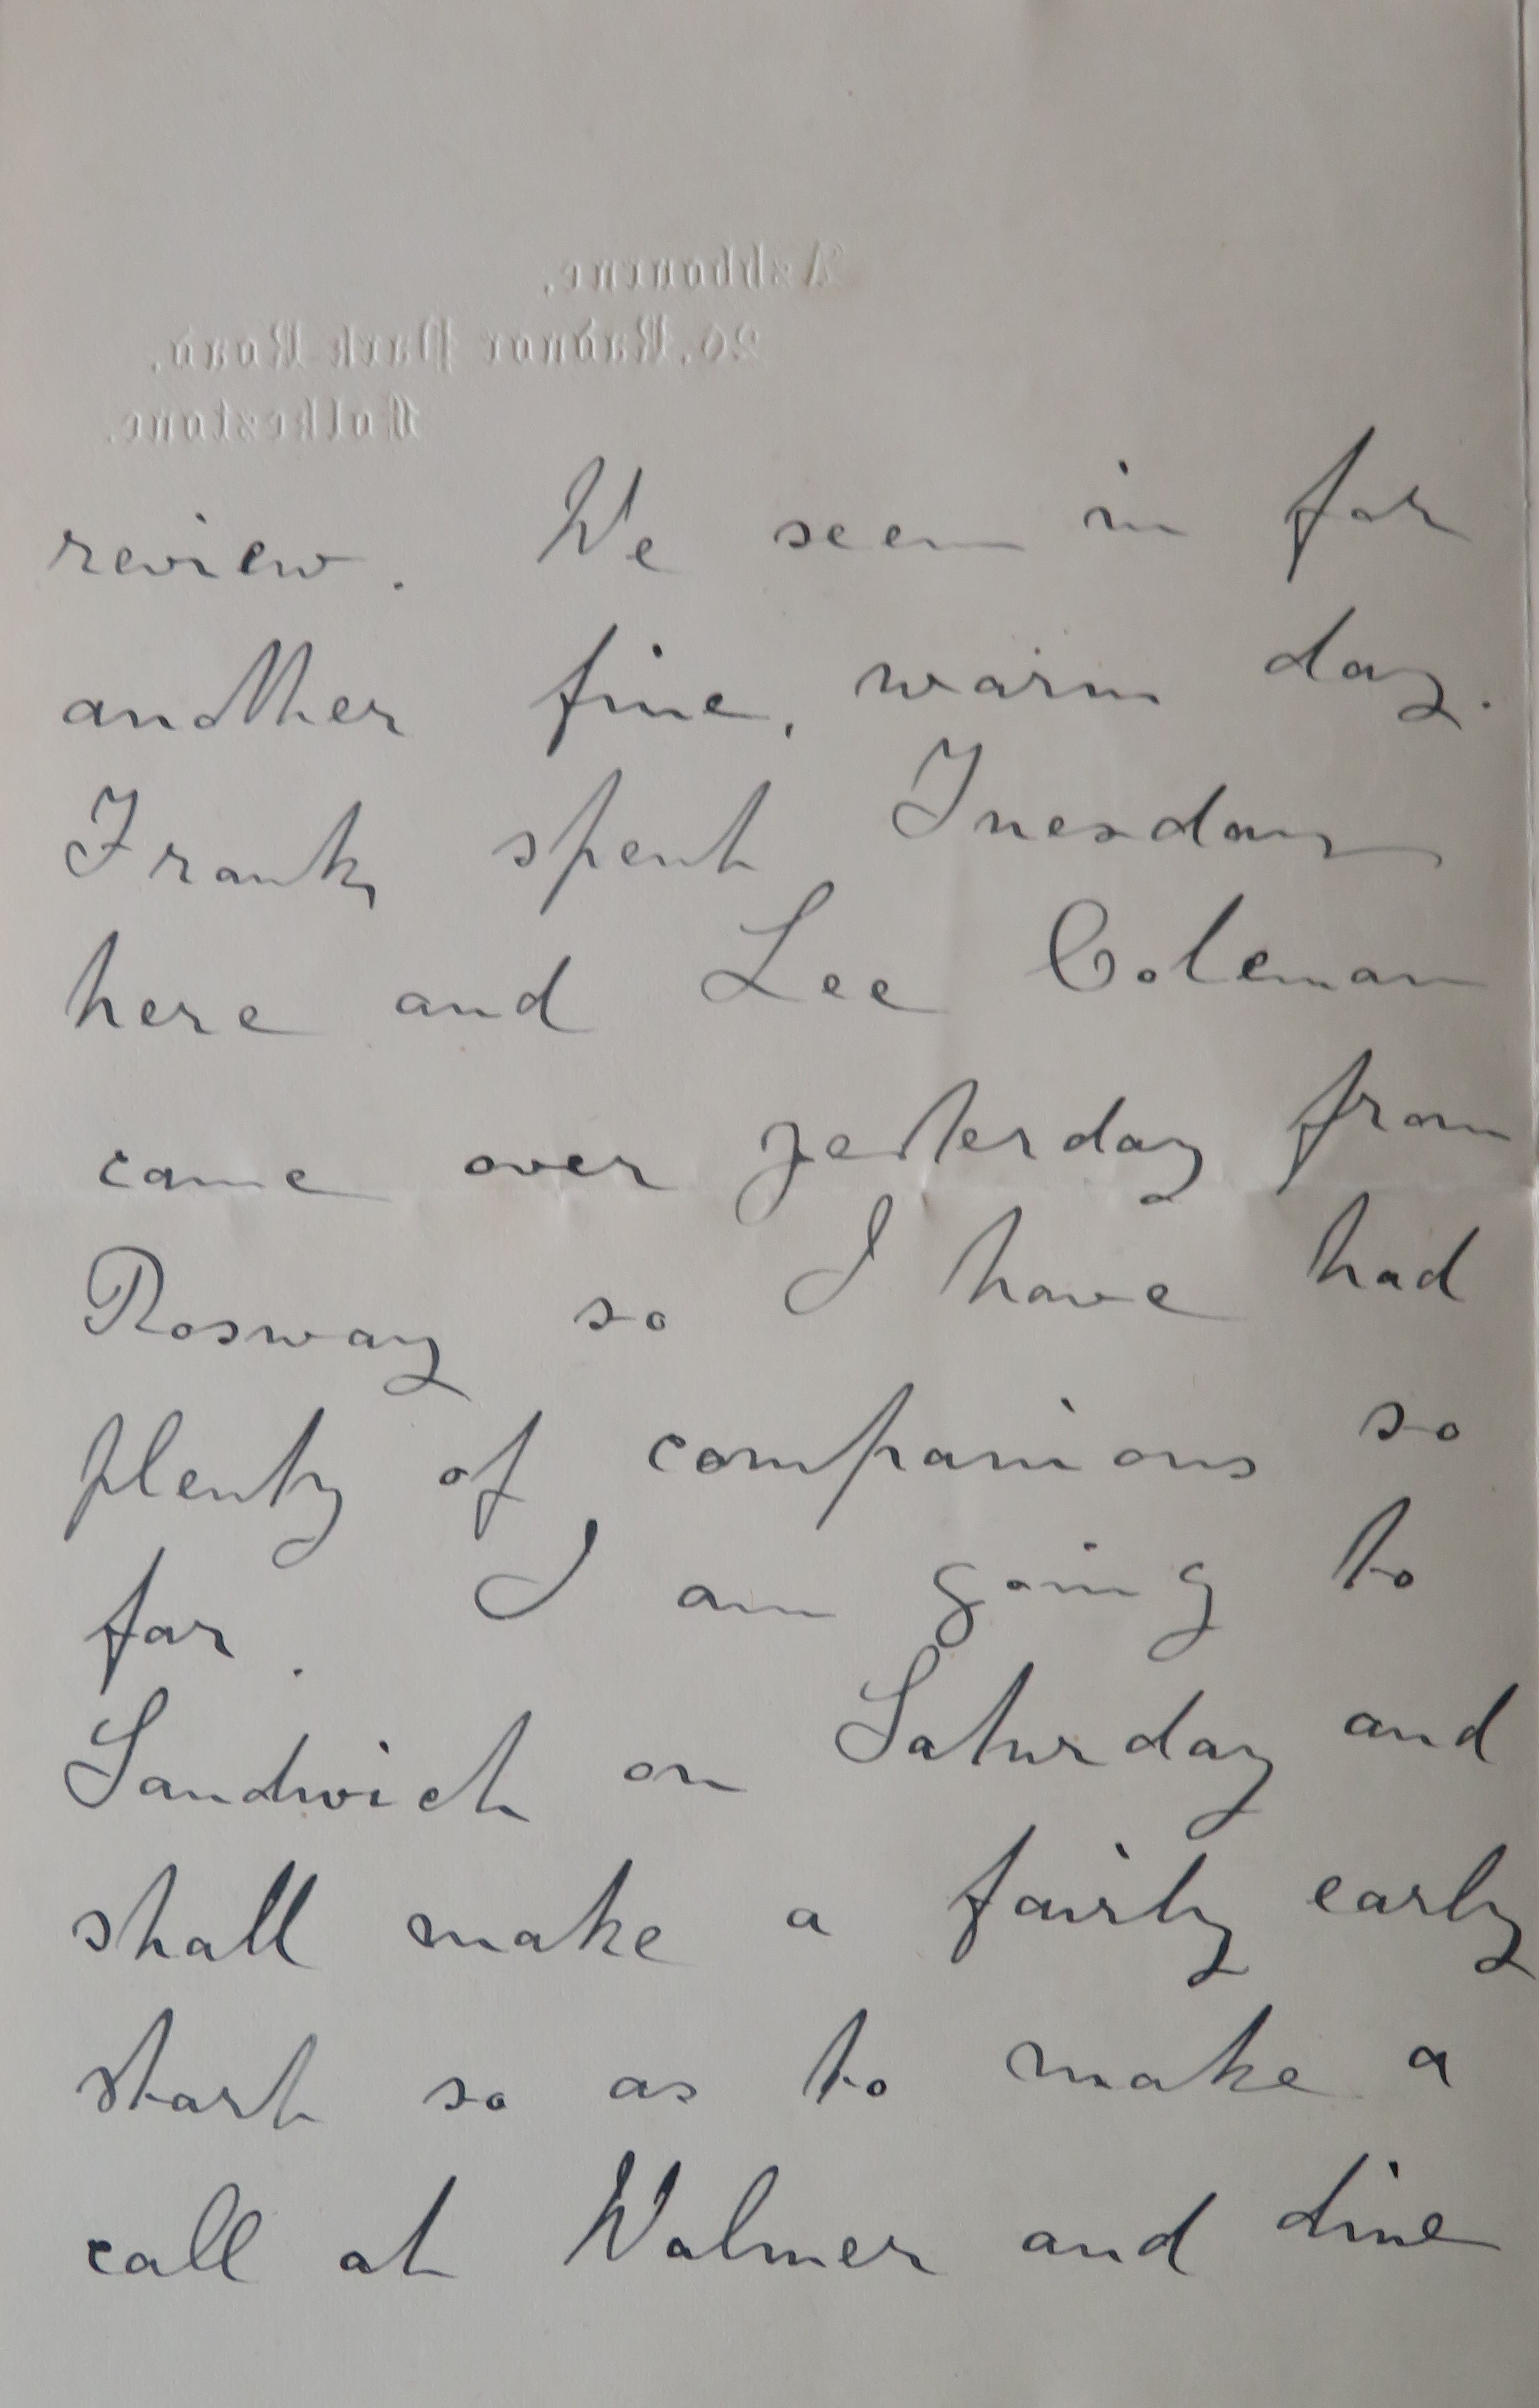 Ashbourne,
20, Radnor Park Road,
Folkestone.
review. We seem in for
another fine, warm day.
Frank spent Tuesday
here and Lee Coleman
came over yesterday from
Rosway so I have had
plenty of companions so
far. I am going to
Sandwich on Saturday and
shall make a fairly early
start so as to make a
call at Walmer and dine